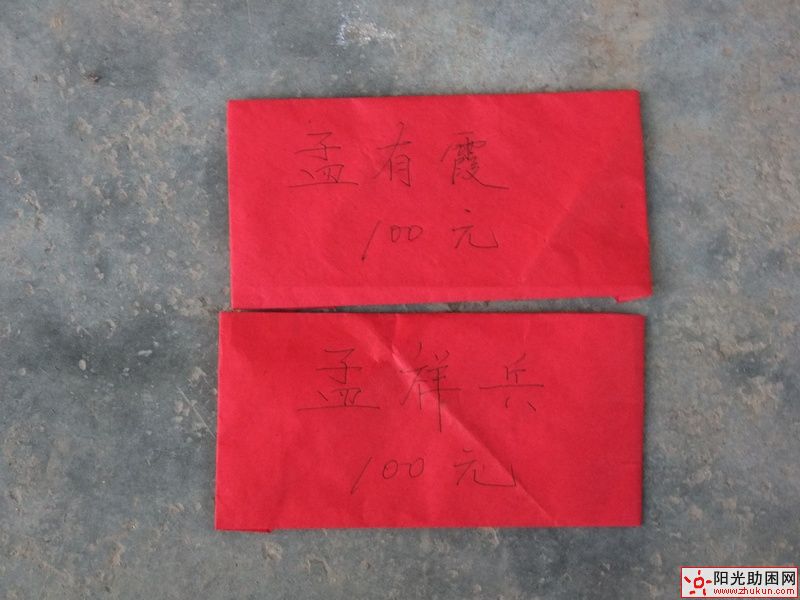 孟有霞
100元
孟祥兵
100元
阳光助困网
www.zhukun.com